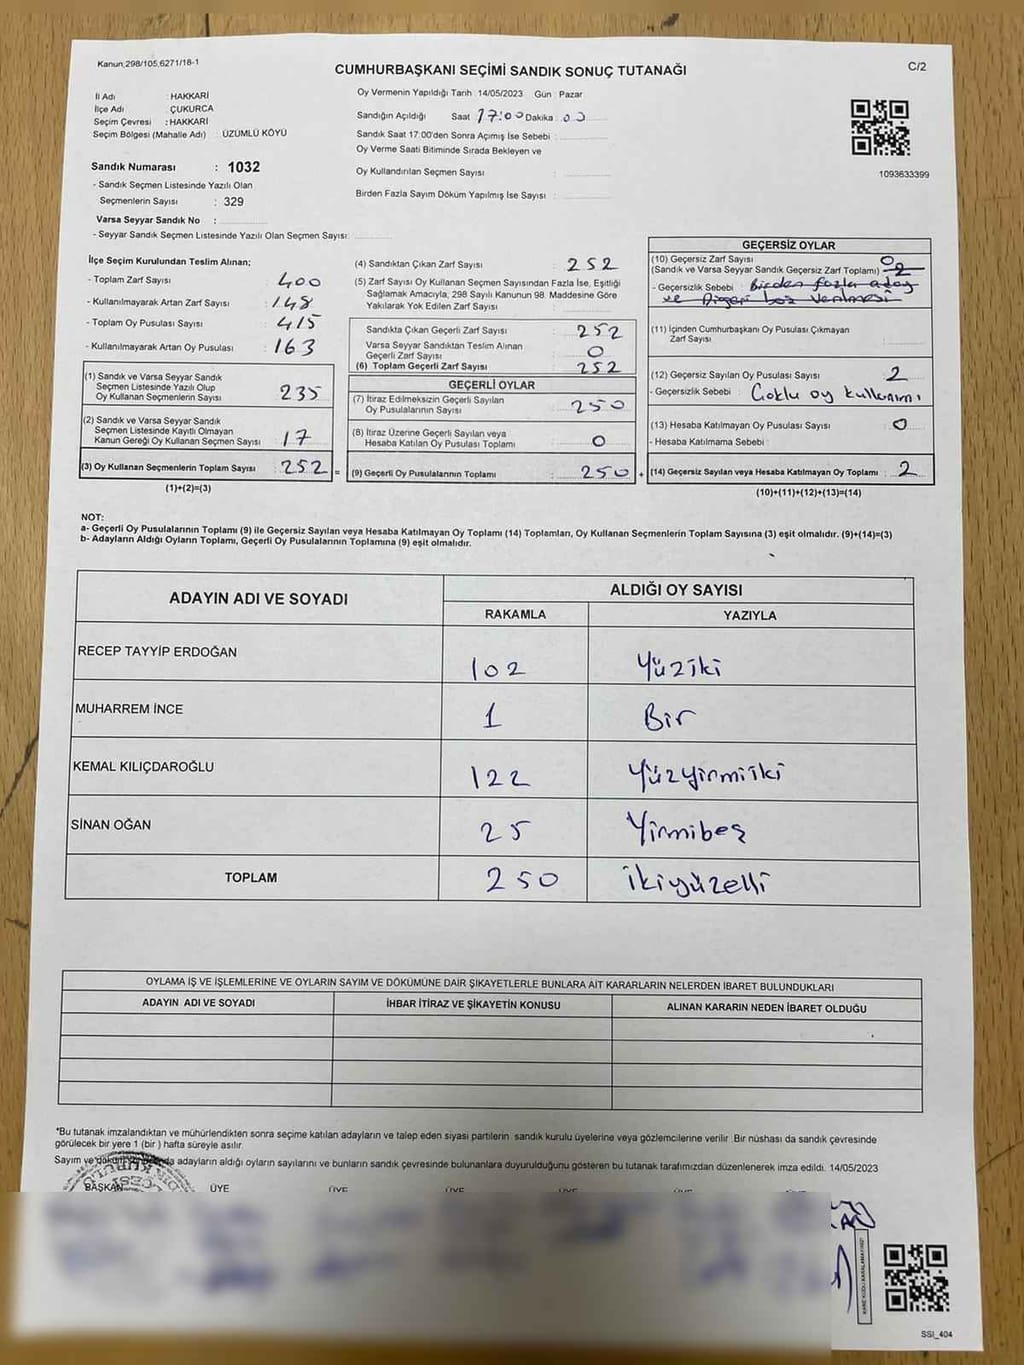 Kanun,298/105,6271/18-1
CUMHURBAŞKANI SEÇİMİ SANDIK SONUÇ TUTANAĞI
C/2
İl Adı : HAKKARİ
İlçe Adı : ÇUKURCA
Seçim Çevresi : HAKKARİ
Seçim Bölgesi (Mahalle Adı) : ÜZÜMLÜ KÖYÜ
Sandık Numarası : 1032
- Sandık Seçmen Listesinde Yazılı Olan
Seçmenlerin Sayısı : 329
Varsa Seyyar Sandık No :
- Seyyar Sandık Seçmen Listesinde Yazılı Olan Seçmen Sayısı:
Oy Vermenin Yapıldığı Tarih : 14/05/2023 Gün : Pazar
Sandığın Açıldığı Saat 17:00 Dakika : 00
Sandık Saat 17:00'den Sonra Açılmış İse Sebebi :
Oy Verme Saati Bitiminde Sırada Bekleyen ve
Oy Kullandırılan Seçmen Sayısı :
Birden Fazla Sayım Döküm Yapılmış İse Sayısı :
1093633399
İlçe Seçim Kurulundan Teslim Alınan;
- Toplam Zarf Sayısı : 400
- Kullanılmayarak Artan Zarf Sayısı : 148
- Toplam Oy Pusulası Sayısı : 415
- Kullanılmayarak Artan Oy Pusulası : 163
(1) Sandık ve Varsa Seyyar Sandık
Seçmen Listesinde Yazılı Olup
Oy Kullanan Seçmenlerin Sayısı : 235
(2) Sandık ve Varsa Seyyar Sandık
Seçmen Listesinde Kayıtlı Olmayan
Kanun Gereği Oy Kullanan Seçmen Sayısı : 17
(3) Oy Kullanan Seçmenlerin Toplam Sayısı : 252 =
(1)+(2)=(3)
(4) Sandıktan Çıkan Zarf Sayısı : 252
(5) Zarf Sayısı Oy Kullanan Seçmen Sayısından Fazla İse, Eşitliği
Sağlamak Amacıyla, 298 Sayılı Kanunun 98. Maddesine Göre
Yakılarak Yok Edilen Zarf Sayısı :
Sandıkta Çıkan Geçerli Zarf Sayısı : 252
Varsa Seyyar Sandıktan Teslim Alınan
Geçerli Zarf Sayısı : 0
(6) Toplam Geçerli Zarf Sayısı : 252
GEÇERLİ OYLAR
(7) İtiraz Edilmeksizin Geçerli Sayılan
Oy Pusulalarının Sayısı : 250
(8) İtiraz Üzerine Geçerli Sayılan veya
Hesaba Katılan Oy Pusulası Toplamı : 0
(9) Geçerli Oy Pusulalarının Toplamı : 250 +
GEÇERSİZ OYLAR
(10) Geçersiz Zarf Sayısı
(Sandık ve Varsa Seyyar Sandık Geçersiz Zarf Toplamı) : 0 2
- Geçersizlik Sebebi : Birden fazla aday
ve Diğeri boş verilmesi
(11) İçinden Cumhurbaşkanı Oy Pusulası Çıkmayan
Zarf Sayısı :
(12) Geçersiz Sayılan Oy Pusulası Sayısı : 2
- Geçersizlik Sebebi : Çoklu oy kullanımı
(13) Hesaba Katılmayan Oy Pusulası Sayısı : 0
- Hesaba Katılmama Sebebi :
(14) Geçersiz Sayılan veya Hesaba Katılmayan Oy Toplamı : 2
(10)+(11)+(12)+(13)=(14)
NOT:
a- Geçerli Oy Pusulalarının Toplamı (9) ile Geçersiz Sayılan veya Hesaba Katılmayan Oy Toplamı (14) Toplamları, Oy Kullanan Seçmenlerin Toplam Sayısına (3) eşit olmalıdır. (9)+(14)=(3)
b- Adayların Aldığı Oyların Toplamı, Geçerli Oy Pusulalarının Toplamına (9) eşit olmalıdır.
ADAYIN ADI VE SOYADI
ALDIĞI OY SAYISI
RAKAMLA YAZIYLA
RECEP TAYYİP ERDOĞAN 102 Yüziki
MUHARREM İNCE 1 Bir
KEMAL KILIÇDAROĞLU 122 Yüzyirmiiki
SİNAN OĞAN 25 Yirmibeş
TOPLAM 250 İkiyüzelli
OYLAMA İŞ VE İŞLEMLERİNE VE OYLARIN SAYIM VE DÖKÜMÜNE DAİR ŞİKAYETLERLE BUNLARA AİT KARARLARIN NELERDEN İBARET BULUNDUKLARI
ADAYIN ADI VE SOYADI İHBAR İTİRAZ VE ŞİKAYETİN KONUSU ALINAN KARARIN NEDEN İBARET OLDUĞU
*Bu tutanak imzalandıktan ve mühürlendikten sonra seçime katılan adayların ve talep eden siyasi partilerin sandık kurulu üyelerine veya gözlemcilerine verilir. Bir nüshası da sandık çevresinde
görülecek bir yere 1 (bir) hafta süreyle asılır.
Sayım ve adayların aldığı oyların sayılarını ve bunların sandık çevresinde bulunanlara duyurulduğunu gösteren bu tutanak tarafımızdan düzenlenerek imza edildi. 14/05/2023
BAŞKAN ÜYE ÜYE ÜYE ÜYE ÜYE
SSI_404